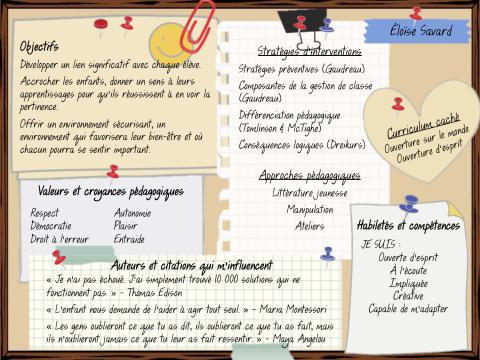 Objectifs
Développer un lien significatif avec chaque élève.
Accrocher les enfants, donner un sens à leurs
apprentissages pour qu'ils réussissent à en voir la
pertinence.
Offrir un environnement sécurisant, un
environnement qui favorisera leur bien-être et où
chacun pourra se sentir important.
Stratégies d'interventions
Stratégies préventives (Gaudreau)
Composantes de la gestion de classe
(Gaudreau)
Différenciation pédagogique
(Tomlinson & McTighe)
Conséquences logiques (Dreikurs)
Approches pédagogiques
Littérature jeunesse
Manipulation
Ateliers
Éloïse Savard
Curriculum caché
Ouverture sur le monde
Ouverture d'esprit
Valeurs et croyances pédagogiques
Respect
Démocratie
Droit à l'erreur
Autonomie
Plaisir
Entraide
Habiletés et compétences
JE SUIS :
Ouverte d'esprit
À l'écoute
Impliquée
Créative
Capable de m'adapter
Auteurs et citations qui m'influencent
« Je n'ai pas échoué. J'ai simplement trouvé 10 000 solutions qui ne
fonctionnent pas. » - Thomas Edison
« L'enfant nous demande de l'aider à agir tout seul. » - Maria Montessori
« Les gens oublieront ce que tu as dit, ils oublieront ce que tu as fait, mais
ils n'oublieront jamais ce que tu leur as fait ressentir. » - Maya Angelou